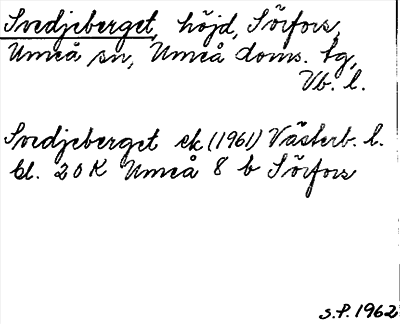 Svedjeberget, höjd, Sörfors,
Umeå sn, Umeå doms. tg,
Vb. l.
Svedjeberget ek (1961) Västerb. l.
bl. 20 K Umeå 8 b Sörfors
S.P. 1962